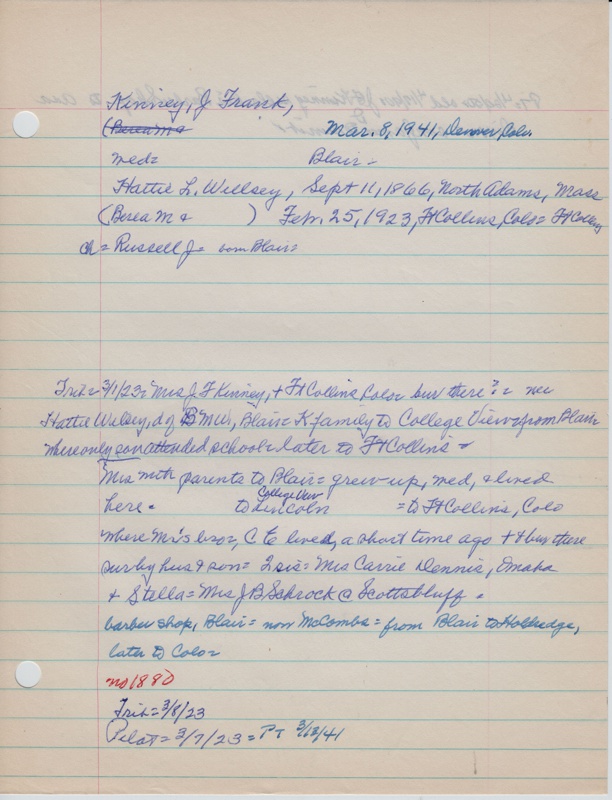 Kinney, J Frank,
(Berea M & Mar. 8, 1941, Denver, Colo.
med= Blair=
Hattie L. Willsey, Sept 11, 1866, North Adams, Mass
(Berea M & ) Feb. 25, 1923, Ft Collins, Colo= Ft Collins
ch= Russell J= born Blair=
Trib= 3/1/23= Mrs J F Kinney, + Ft Collins Colo= bur there?= nee
Hattie Wilsey, d of B M W, Blair= K family to College View= from Blair
where only son attended school= later to Ft Collins=
Mrs with parents to Blair= grew up, med, & lived
College View
here= to Lincoln = to Ft Collins, Colo
where Mr's bro=, C E lived, a short time ago + & bur there
sur by hus & son= 2 sis= Mrs Carrie Dennis, Omaha
& Stella= Mrs J B Schrock @ Scottsbluff=
barber shop, Blair= now McCombs= from Blair to Holdredge,
later to Colo=
no 1880
Trib= 3/8/23
Pilot= 3/7/23= PT 3/13/41